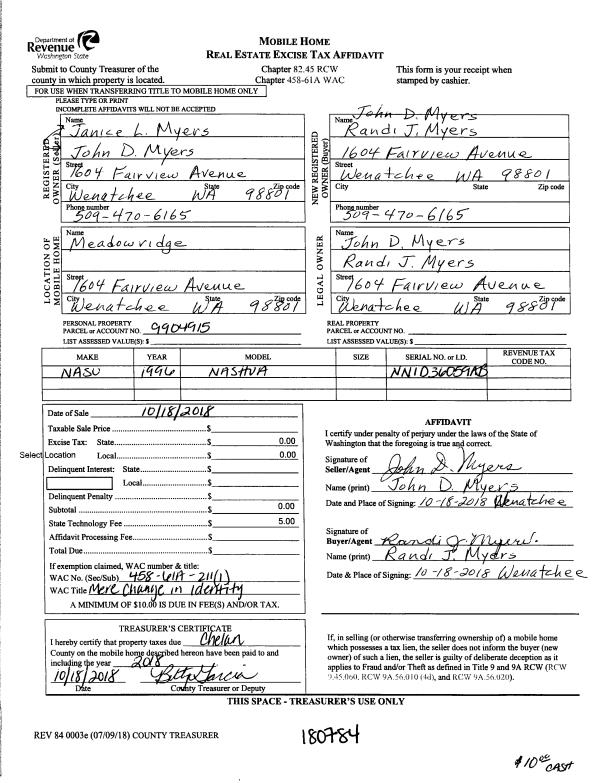 Department of
Revenue
Washington State
MOBILE HOME
REAL ESTATE EXCISE TAX AFFIDAVIT
Submit to County Treasurer of the
county in which property is located.
Chapter 82.45 RCW
Chapter 458-61A WAC
This form is your receipt when
stamped by cashier.
FOR USE WHEN TRANSFERRING TITLE TO MOBILE HOME ONLY
PLEASE TYPE OR PRINT
INCOMPLETE AFFIDAVITS WILL NOT BE ACCEPTED
REGISTERED OWNER (Seller)
Name
Janice L. Myers
John D. Myers
Street
1604 Fairview Avenue
City State Zip code
Wenatchee WA 98801
Phone number
509-470-6165
NEW REGISTERED OWNER (Buyer)
John D. Myers
Name
Randi J. Myers
1604 Fairview Avenue
Street
Wenatchee WA 98801
City State Zip code
Phone number
509-470-6165
LOCATION OF MOBILE HOME
Name
Meadowridge
Street
1604 Fairview Avenue
City State Zip code
Wenatchee WA 98801
LEGAL OWNER
Name
John D. Myers
Randi J. Myers
Street
1604 Fairview Avenue
City State Zip code
Wenatchee WA 98801
PERSONAL PROPERTY
PARCEL or ACCOUNT NO. 9904915
LIST ASSESSED VALUE(S): $
REAL PROPERTY
PARCEL or ACCOUNT NO.
LIST ASSESSED VALUE(S): $
MAKE YEAR MODEL SIZE SERIAL NO. or I.D. REVENUE TAX CODE NO.
NASU 1996 NASHUA NNID36059AB
Date of Sale 10/18/2018
Taxable Sale Price $
Excise Tax: State $ 0.00
Select Location Local $ 0.00
Delinquent Interest: State $
Local $
Delinquent Penalty $
Subtotal $ 0.00
State Technology Fee $ 5.00
Affidavit Processing Fee $
Total Due $
If exemption claimed, WAC number & title:
WAC No. (Sec/Sub) 458-61A-211(1)
WAC Title Mere Change in Identity
A MINIMUM OF $10.00 IS DUE IN FEE(S) AND/OR TAX.
AFFIDAVIT
I certify under penalty of perjury under the laws of the State of
Washington that the foregoing is true and correct.
Signature of
Seller/Agent John D. Myers
Name (print) John D. Myers
Date and Place of Signing: 10-18-2018 Wenatchee
Signature of
Buyer/Agent Randi J. Myers
Name (print) Randi J. Myers
Date & Place of Signing: 10-18-2018 Wenatchee
TREASURER'S CERTIFICATE
I hereby certify that property taxes due Chelan
County on the mobile home described hereon have been paid to and
including the year 2018
10/18/2018 Betty Garcia
Date County Treasurer or Deputy
If, in selling (or otherwise transferring ownership of) a mobile home
which possesses a tax lien, the seller does not inform the buyer (new
owner) of such a lien, the seller is guilty of deliberate deception as it
applies to Fraud and/or Theft as defined in Title 9 and 9A RCW (RCW
9.45.060, RCW 9A.56.010 (4d), and RCW 9A.56.020).
THIS SPACE - TREASURER'S USE ONLY
REV 84 0003e (07/09/18) COUNTY TREASURER
180784
$10.00 CASH